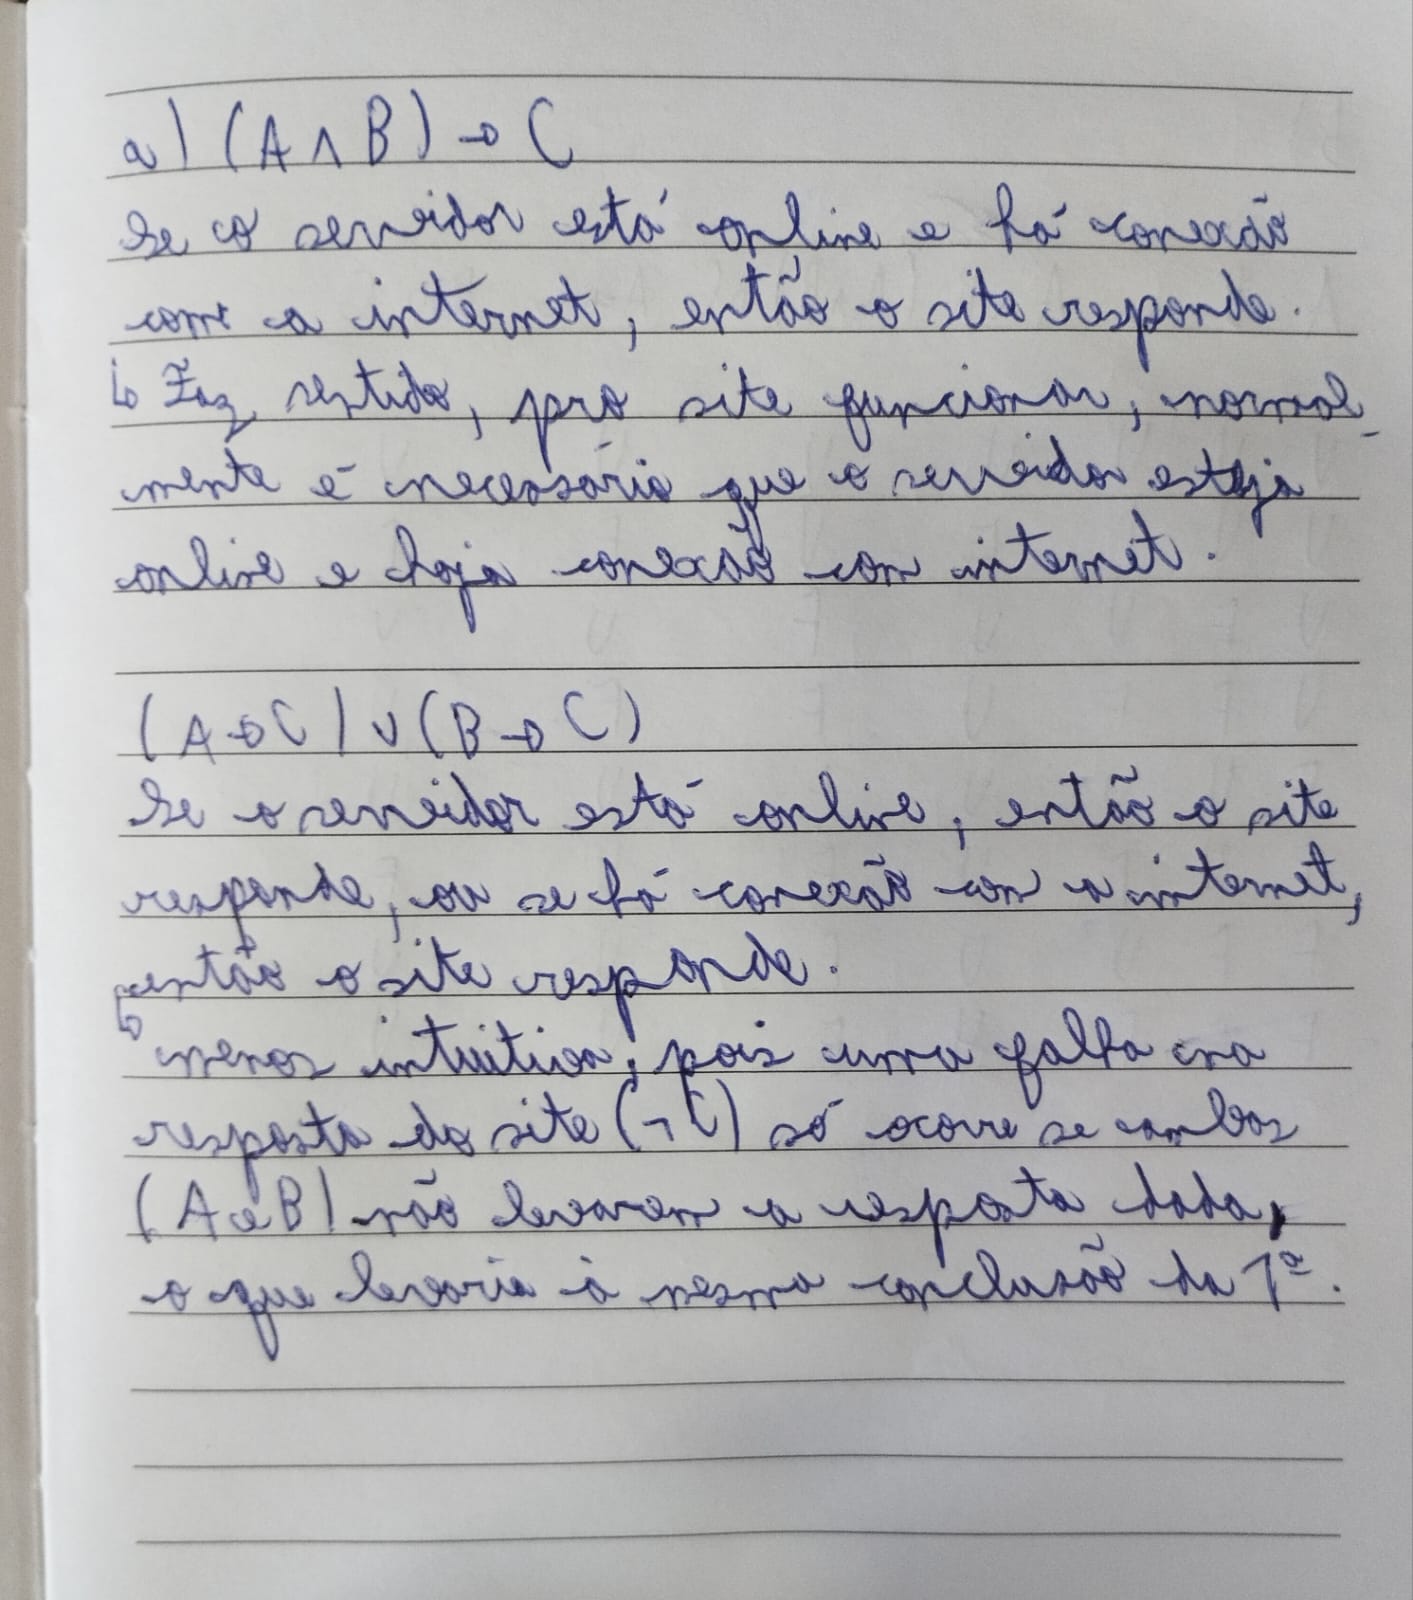 a) (A ∧ B) → C
Se o servidor está online e há conexão
com a internet, então o site responde.
↳ Faz sentido, pro site funcionar, normal-
mente é necessário que o servidor esteja
online e haja conexão com internet.
(A → C) ∨ (B → C)
Se o servidor está online, então o site
responde, ou se há conexão com a internet,
então o site responde.
↳ menos intuitiva, pois uma falha na
resposta do site (¬C) só ocorre se ambos
(A e B) não levarem a resposta dada,
o que levaria à mesma conclusão da 1ª.